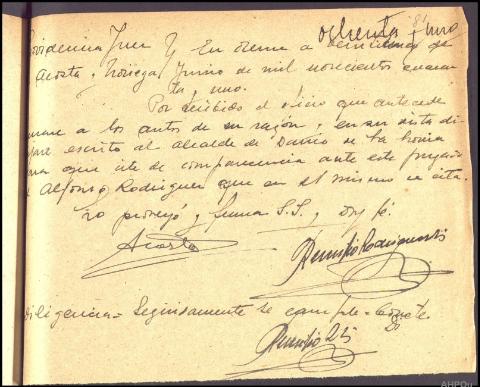 81
ochenta y uno
Providencia Juez Y En Orense a veinticinco de
Acosta Noriega Junio de mil novecientos cuaren
ta y uno.
Por recibido el oficio que antecede
unase a los autos de su razón, y en su vista di
escrito al alcalde de Barrio de la
para que cite de comparecencia ante este Juzgado
a Alfonso Rodriguez que en el mismo se cita.
Lo proveyó y firma S.S., doy fé.
Acosta
Remigio Rodriguez
Diligencia = Seguidamente se cumple =
Remigio
AHPOu